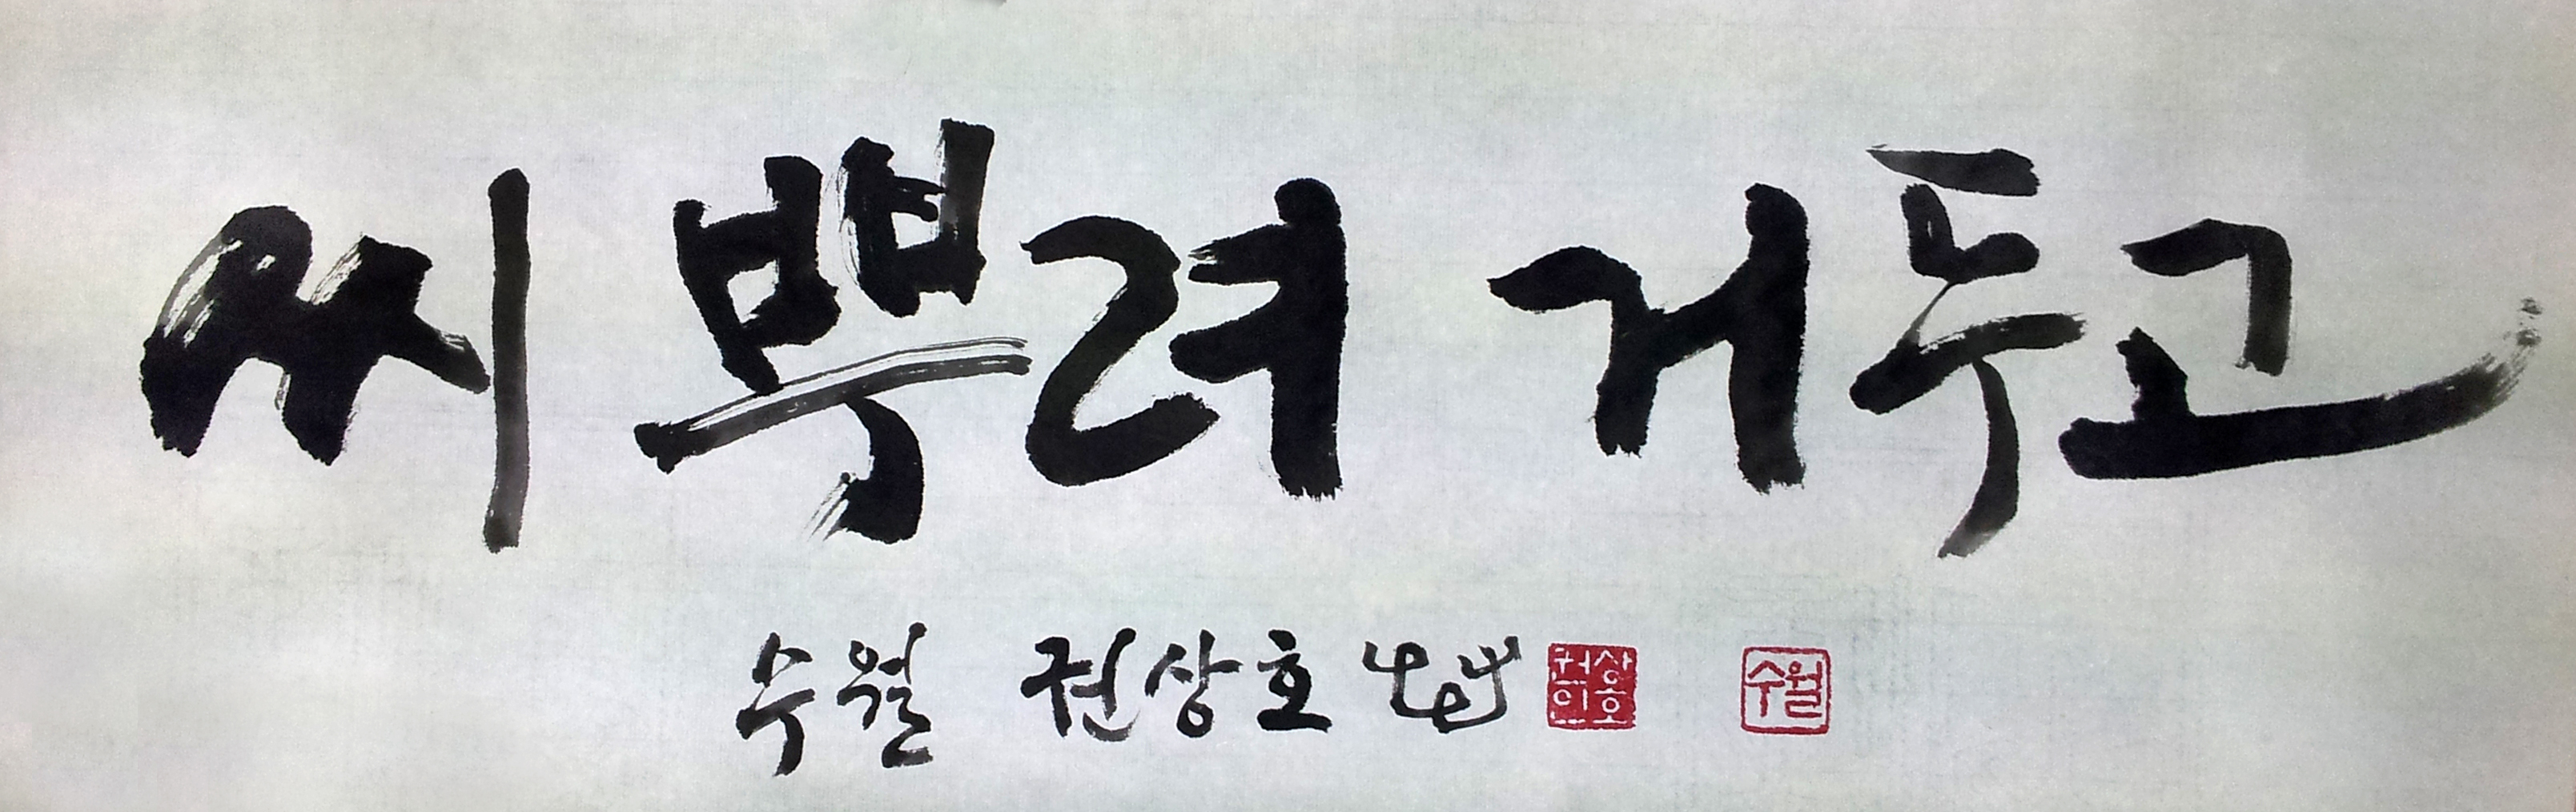 씨 뿌려 거두고
수월 권상호
권상호인
수월